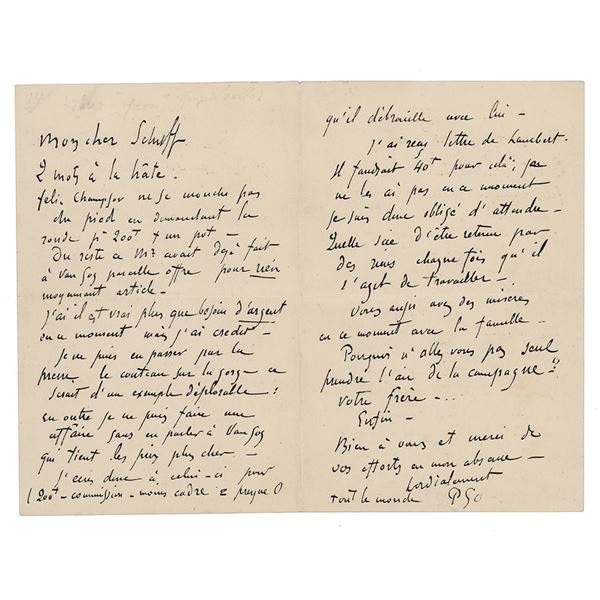 Mon cher Schuff
2 mots à la hâte.
Felix Champsor ne se mouche pas
du pied en demandant la
ronde pr 200f + un pot -
Du reste ce Mr avait déjà fait
à Van Gog pareille offre pour rien
moyennant article -
J'ai il est vrai plus que besoin d'argent
en ce moment mais j'ai credit -
Je ne puis en passer par la
presse le couteau sur la gorge - ce
serait d'un exemple déplorable :
en outre je ne puis faire une
affaire sans en parler à Van Gog
qui tient les prix plus cher. -
J'écris donc à celui-ci pour
(200f - commission - moins cadre = presque 0
qu'il débrouille avec lui -
J'ai reçu lettre de Lambert.
Il faudrait 40f pour celà; je
ne les ai pas en ce moment
je suis donc obligé d'attendre -
Quelle scie d'être retenu par
des riens chaque fois qu'il
s'agit de travailler -
Vous aussi avez des misères
en ce moment avec la famille -
Pourquoi n'allez vous pas seul
prendre l'air de la campagne -?
votre frère - ...
Enfin -
Bien à vous et merci de
vos efforts en mon absence -
Cordialement
tout le monde PGo